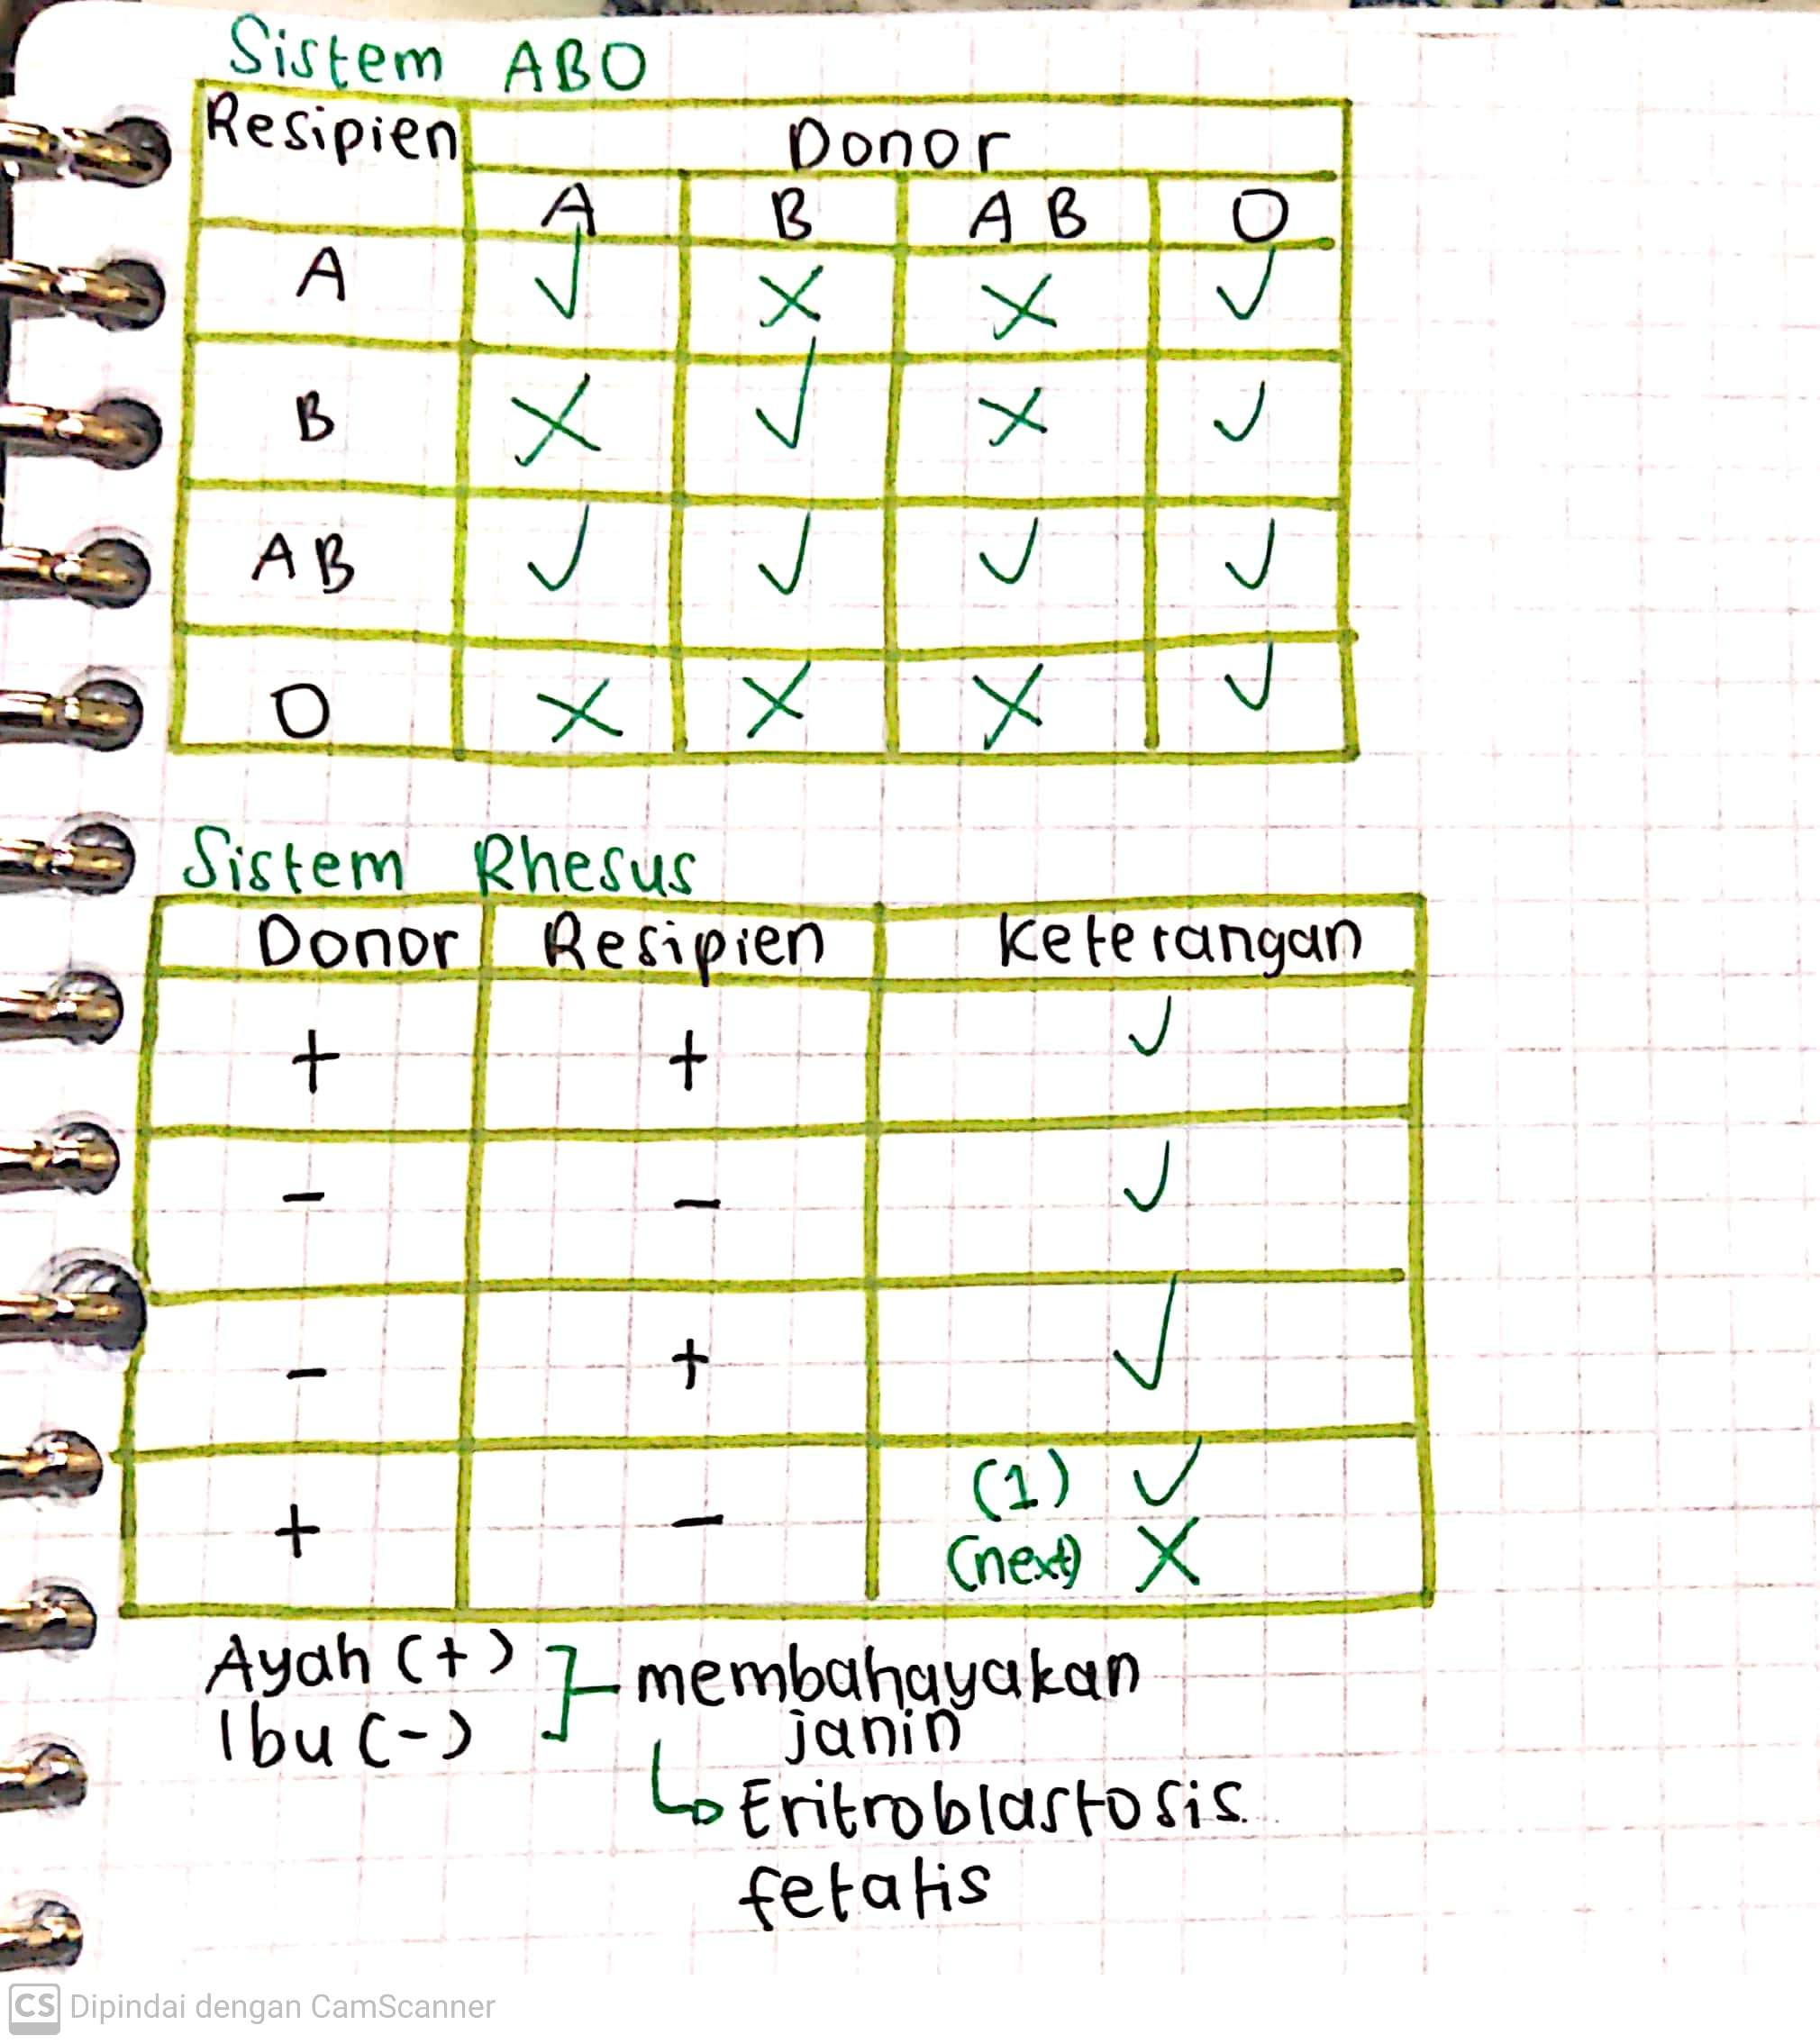 Sistem ABO
Resipien Donor
A B AB O
A ✓ X X ✓
B X ✓ X ✓
AB ✓ ✓ ✓ ✓
O X X X ✓
Sistem Rhesus
Donor Resipien Keterangan
+ + ✓
- - ✓
- + ✓
+ - (1) ✓
(next) X
Ayah (+)
Ibu (-)
membahayakan
janin
Eritroblastosis
fetalis
CS Dipindai dengan CamScanner